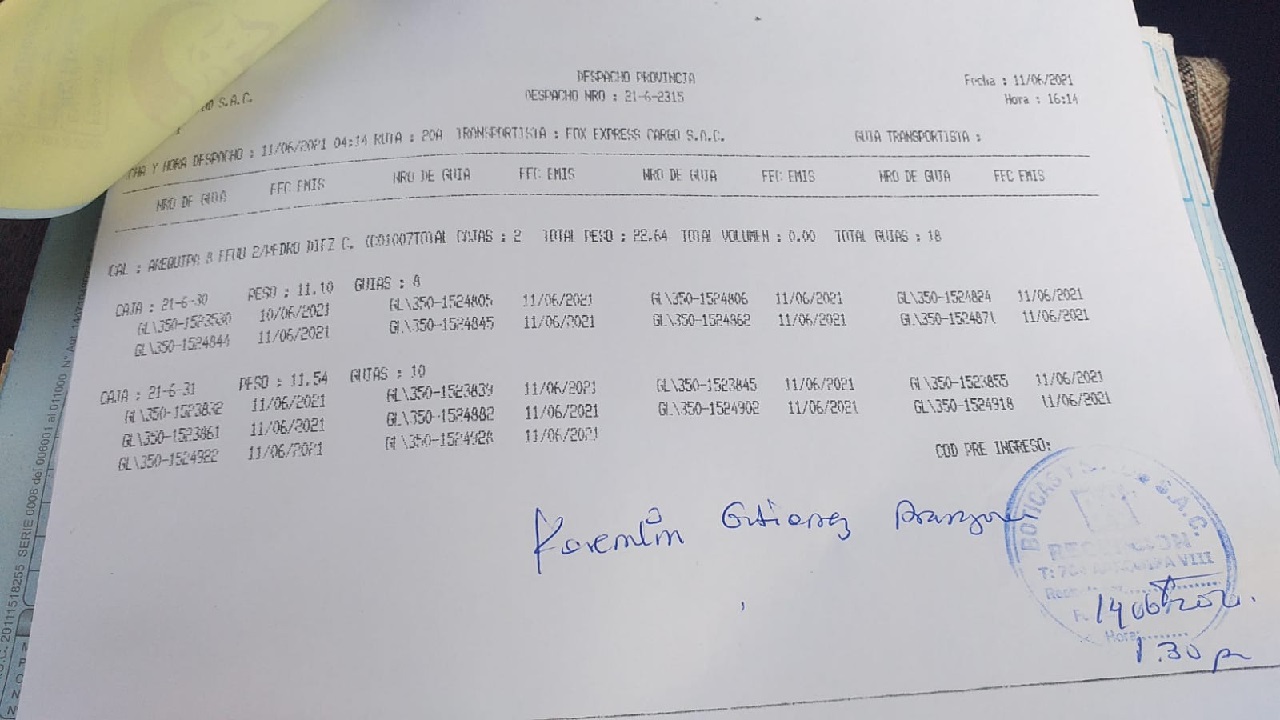 S.A.C.
DESPACHO PROVINCIA
Fecha : 11/06/2021
DESPACHO NRO : 21-6-2315
Hora : 16:14
Y HORA DESPACHO : 11/06/2021 04:14 RUTA : 20A TRANSPORTISTA : FOX EXPRESS CARGO S.A.C. GUIA TRANSPORTISTA :
NRO DE GUIA FEC EMIS NRO DE GUIA FEC EMIS NRO DE GUIA FEC EMIS NRO DE GUIA FEC EMIS
CAL : AREQUIPA 8 FFUU 2/PEDRO DIEZ C. TOTAL CAJAS : 2 TOTAL PESO : 22.64 TOTAL VOLUMEN : 0.00 TOTAL GUIAS : 18
CAJA : 21-6-30 PESO : 11.10 GUIAS : 8
GL\350-1523530 10/06/2021 GL\350-1524805 11/06/2021 GL\350-1524806 11/06/2021 GL\350-1524824 11/06/2021
GL\350-1524844 11/06/2021 GL\350-1524845 11/06/2021 GL\350-1524862 11/06/2021 GL\350-1524871 11/06/2021
CAJA : 21-6-31 PESO : 11.54 GUIAS : 10
GL\350-1523832 11/06/2021 GL\350-1523839 11/06/2021 GL\350-1523845 11/06/2021 GL\350-1523855 11/06/2021
GL\350-1523861 11/06/2021 GL\350-1524882 11/06/2021 GL\350-1524902 11/06/2021 GL\350-1524918 11/06/2021
GL\350-1524922 11/06/2021 GL\350-1524928 11/06/2021
COD PRE INGRESO:
BOTICAS S.A.C.
RECEPCION
T: AREQUIPA VIII
Hora:
1.30 p
20111518255 SERIE 0006 del 006001 al 011000 N° Aut